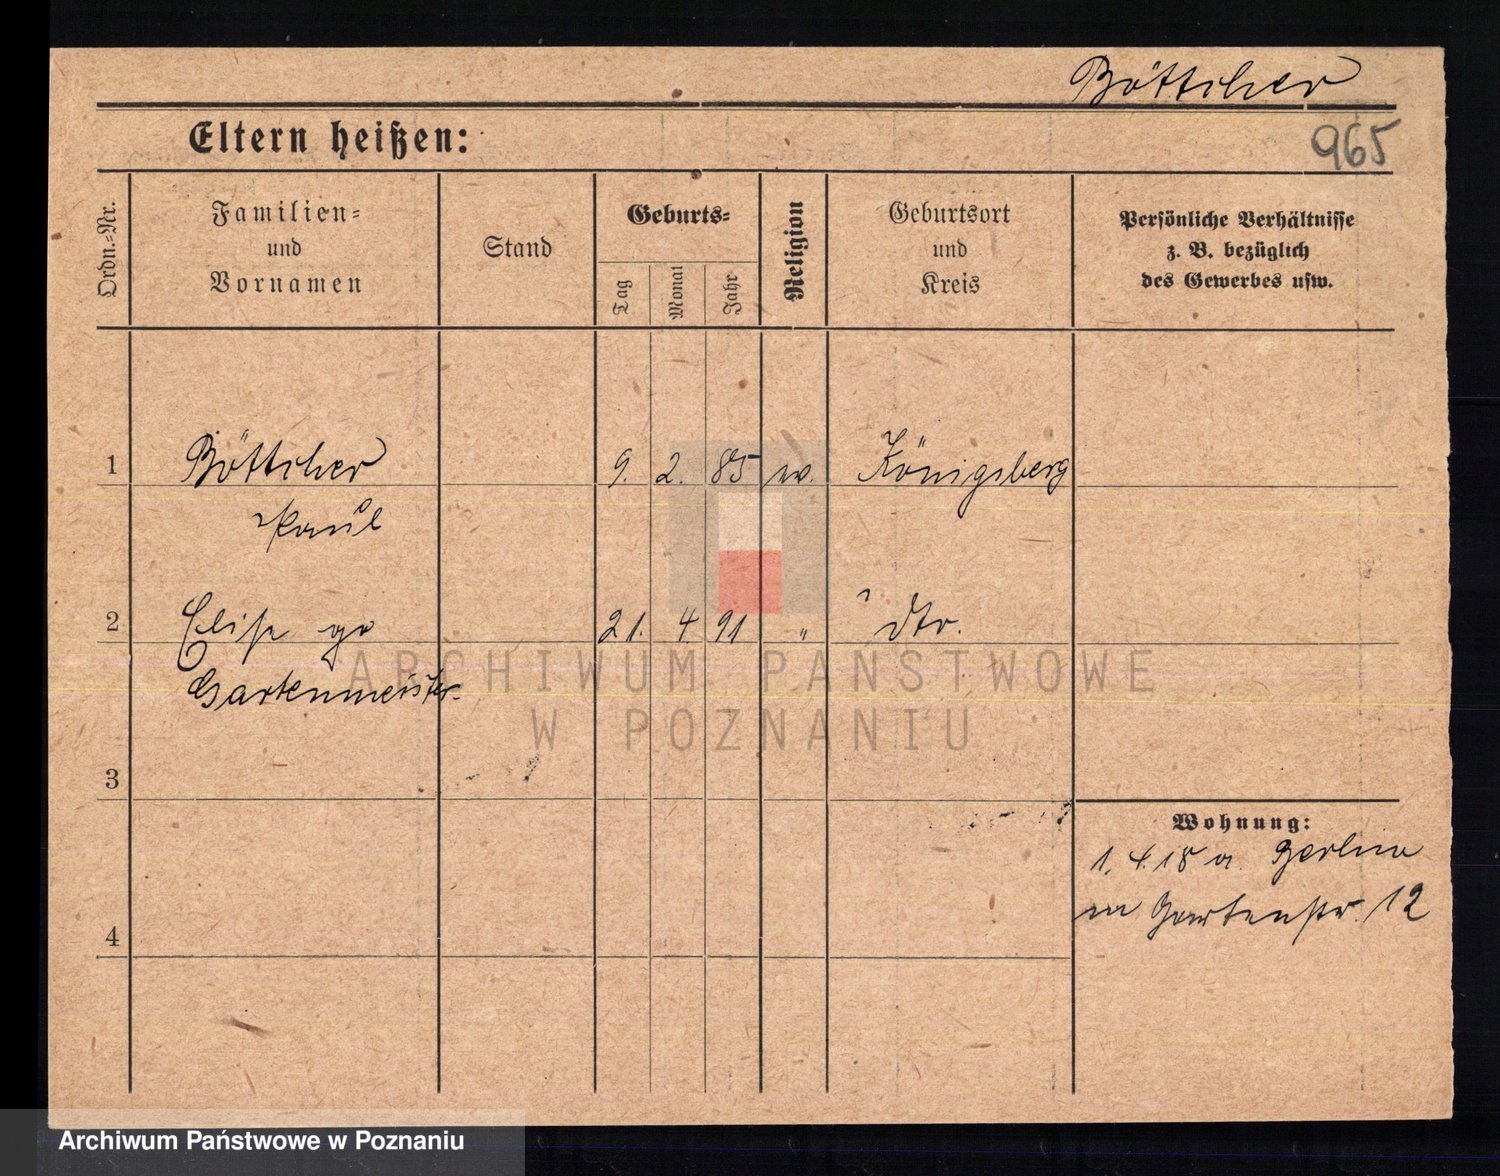 Böttcher
Eltern heißen:
965
Ordn.-Nr.
Familien-
und
Vornamen
Stand
Geburts-
Tag
Monat
Jahr
Religion
Geburtsort
und
Kreis
Persönliche Verhältnisse
z. B. bezüglich
des Gewerbes usw.
1 Böttcher 9. 2. 85 Königsberg
Paul
2 Elise 21. 4 91 " dto.
Gartenmeister
ARCHIWUM PAŃSTWOWE
W POZNANIU
3
Wohnung:
1. 4. 18 a. Berlin
Gartenstr. 12
4
Archiwum Państwowe w Poznaniu